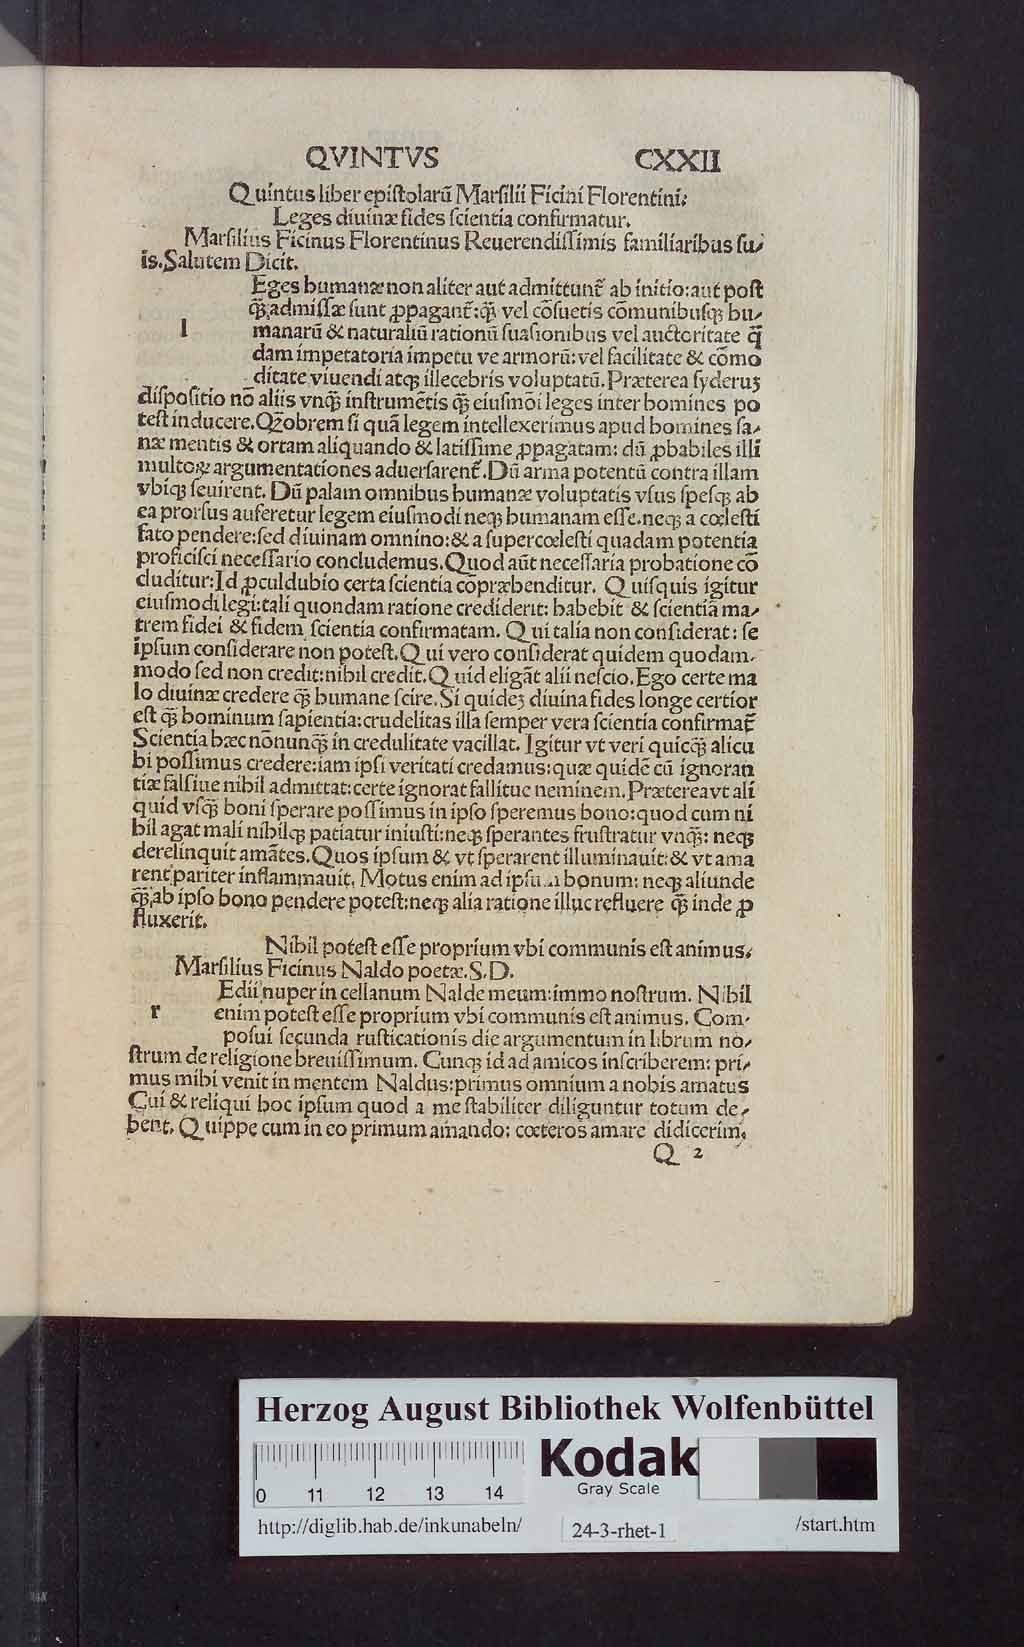 QVINTVS CXXII
Quintus liber epistolarū Marsilii Ficini Florentini:
Leges diuinæ fides scientia confirmatur.
Marsilius Ficinus Florentinus Reuerendissimis familiaribus su/
is. Salutem Dicit.
Eges humanæ non aliter aut admittunt̃ ab initio: aut post
q̄ȝ admissæ sunt ꝓpagant̃: q̄ȝ vel cōsuetis cōmunibusqȝ hu/
l manarū & naturaliū rationū suasionibus vel auctoritate q̄
dam impetatoria impetu ve armorū: vel facilitate & cōmo
ditate viuendi atqȝ illecebris voluptatū. Præterea syderuȝ
dispositio nō aliis vnq̄ȝ instrumētis q̄ȝ eiusmōi leges inter homines po
test inducere. Qȝobrem si quā legem intellexerimus apud homines sa/
næ mentis & ortam aliquando & latissime ꝓpagatam: dū ꝓbabiles illi
multoꝝ argumentationes aduersarent̃. Dū arma potentū contra illam
vbiqȝ seuirent. Dū palam omnibus humanæ voluptatis vsus spesqȝ ab
ea prorsus auferetur legem eiusmodi neqȝ humanam esse. neqȝ a cœlesti
fato pendere: sed diuinam omnino: & a supercœlesti quadam potentia
proficisci necessario concludemus. Quod aūt necessaria probatione cō
cluditur: Id ꝓculdubio certa scientia cōpræhenditur. Quisquis igitur
eiusmodi legi: tali quondam ratione crediderit: habebit & scientiā ma/
trem fidei & fidem scientia confirmatam. Qui talia non considerat: se
ipsum considerare non potest. Qui vero considerat quidem quodam/
modo sed non credit: nihil credit. Quid eligāt alii nescio. Ego certe ma
lo diuinæ credere q̄ȝ humane scire. Si quideȝ diuina fides longe certior
est q̄ȝ hominum sapientia: crudelitas illa semper vera scientia confirmat̃
Scientia hæc nōnunq̄ȝ in credulitate vacillat. Igitur vt veri quicq̄ȝ alicu
bi possimus credere: iam ipsi veritati credamus: quæ quidē cū ignoran
tiæ falsiue nihil admittat: certe ignorat fallitue neminem. Præterea vt ali
quid vsq̄ȝ boni sperare possimus in ipso speremus bono: quod cum ni
hil agat mali nihilqȝ patiatur iniusti: neqȝ sperantes frustratur vnq̄ȝ: neqȝ
derelinquit amātes. Quos ipsum & vt sperarent illuminauit: & vt ama
rent pariter inflammauit. Motus enim ad ipsum bonum: neqȝ aliunde
q̄ȝ ab ipso bono pendere potest: neqȝ alia ratione illuc refluere q̄ȝ inde ꝓ
fluxerit.
Nihil potest esse proprium vbi communis est animus.
Marsilius Ficinus Naldo poetæ. S. D.
Edii nuper in cellanum Nalde meum: immo nostrum. Nihil
r enim potest esse proprium vbi communis est animus. Com/
posui secunda rusticationis die argumentum in librum no/
strum de religione breuissimum. Cunqȝ id ad amicos inscriberem: pri/
mus mihi venit in mentem Naldus: primus omnium a nobis amatus
Cui & reliqui hoc ipsum quod a me stabiliter diliguntur totum de/
bent. Quippe cum in eo primum amando: cœteros amare didicerim.
Q 2
Herzog August Bibliothek Wolfenbüttel
0 11 12 13 14
Kodak
Gray Scale
http://diglib.hab.de/inkunabeln/ 24-3-rhet-1 /start.htm